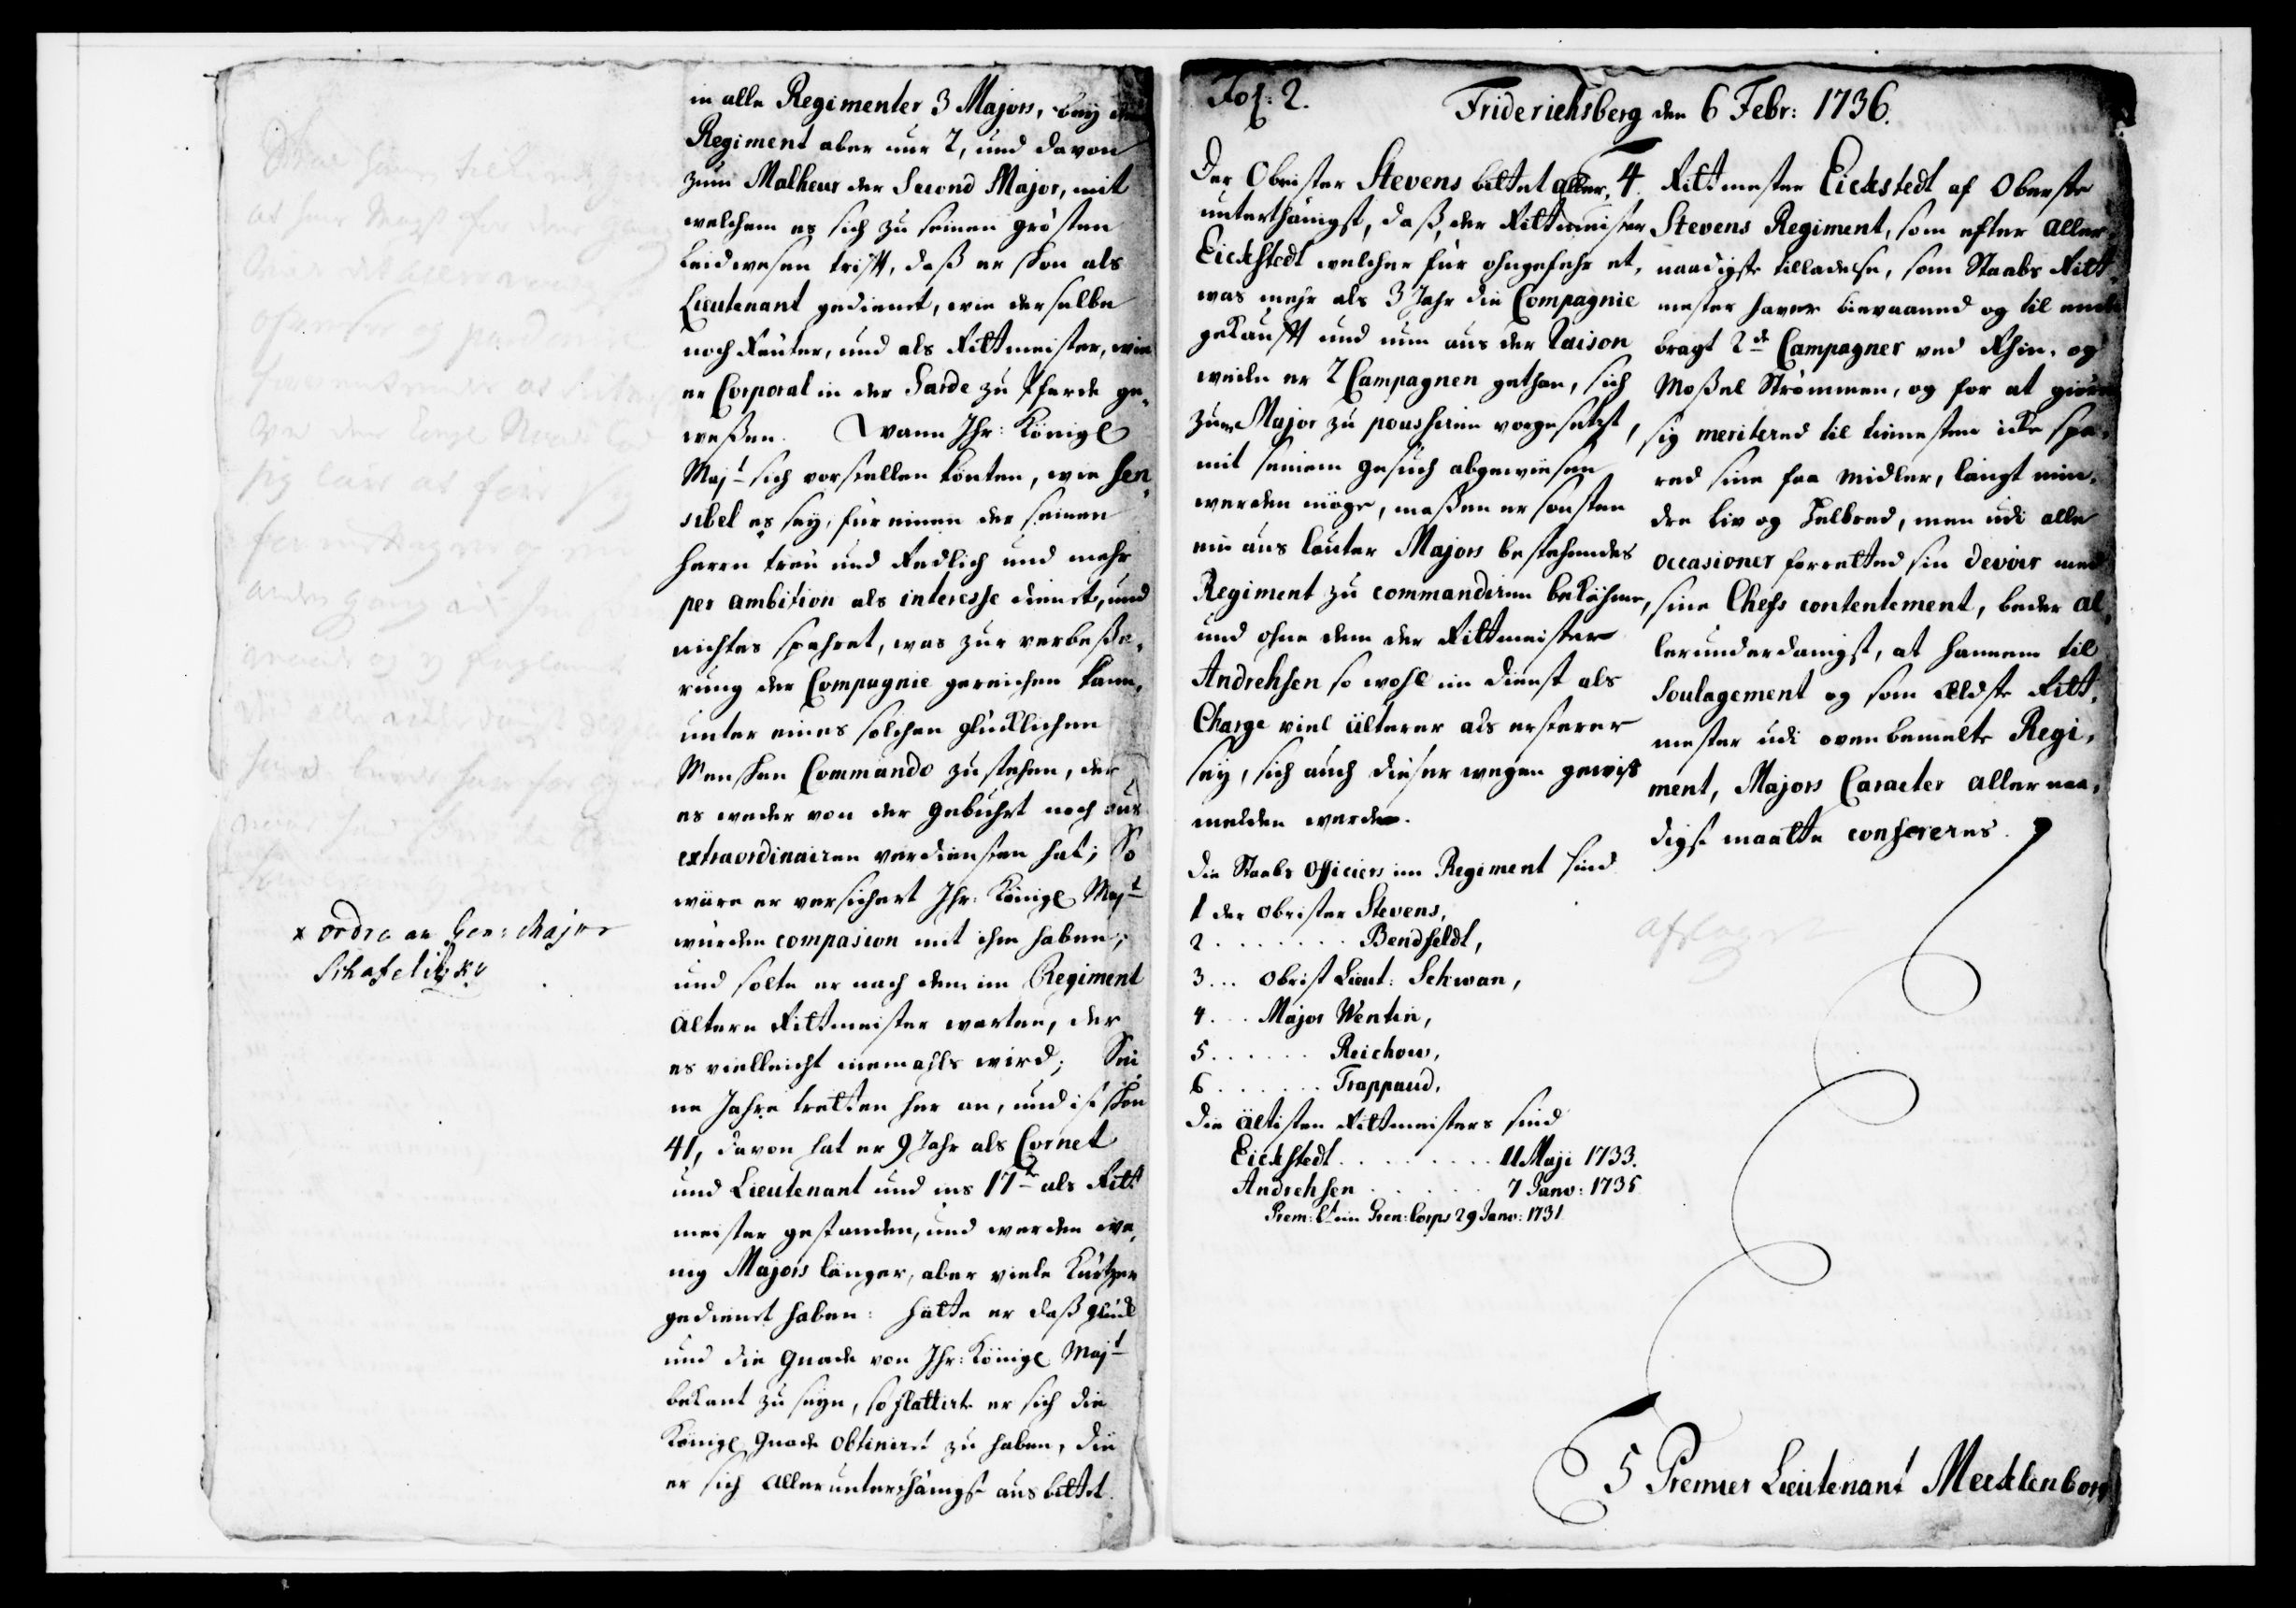 in alle Regimenter 3 Majors, bey
Regiment aber nur 2, und davon
zum Malheur der Second Major, mit
welchem es sich zu seinen grösten
Leidwesen trifft, daß er schon als
Lieutenant gedienet, wie derselbe
noch Reuter, und als Rittmeister, wie
er Corporal in der Garde zu Pferde ge¬
weßen. Wann Ihr: Königl
Majt sich vorstellen könten, wie sen¬
sibel es sey, für einen der seinen
Herrn treu und Redlich und mehr
per ambition als interesse dienet, und
nichtes spahret, was zur verbeße¬
rung der Compagnie gereichen kann,
unter eines solchen glücklichen
Menschen Commando zu stehen, der
es weder von der Gebuhrt noch aus
extraordinairen verdiensten hat; So
wäre er versichert Ihr: Königl Majt
würden compasion mit ihm haben,
und solte er nach dem im Regiment
ältern Rittmeister warten, der
es vielleicht niemahls wird; Sei¬
ne Jahre tretten her an, und ist schon
41, davon hat er 9 Jahr als Cornet
und Lieutenant und ins 17te als Ritt
meister gestanden, und werden we¬
nig Majors länger, aber viele Kürtzer
gedienet haben: hätte er daß glück
und die Gnade von Ihr: Königl Majt
bekant zu seyn, so flattirte er sich die
Königl Gnade obtiniret zu haben, die
er sich allerunterthänigst ausbittet.
x ordre an Gen: Major
Schafelitzky
Fol: 2.
Friderichsberg den 6 Febr: 1736.
Der Obrister Stevens bittet aller¬
unterthänigst, daß, der Rittmeister
Eickstedt welcher für ohngefehr et¬
was mehr als 3 Jahr die Compagnie
gekaufft und nun aus der Raison
weilen er 2 Campagnen gethan, sich
zum Major zu poussiren vorgesetzt,
mit seinem gesuch abgewiesen
werden möge, maßen er sonsten
ein aus lauter Majors bestehendes
Regiment zu commandiren bekähme,
und ohne dem der Rittmeister
Andrehsen so wohl im dienst als
Charge viel älterer als ersterer
sey, sich auch dieser wegen gewiß
melden werde.
Die Staabs Officiers im Regiment sind
1 der Obrister Stevens,
2 . . . . . . . Bendfeldt,
3 . . . Obrist Lieut: Schwan,
4 . . . Major Wentin,
5 . . . . . . Reichow,
6 . . . . . . Trappaud,
Die ältisten Rittmeisters sind
Eickstedt . . . . . . . . 11 Maji 1733.
Andrehsen . . . . . . 7 Janv: 1735
Prem: Lt im Gren: Corps 29 Janv: 1731
4. Rittmester Eickstedt af Oberste
Stevens Regiment, som efter aller¬
naadigste tilladelse, som Staabs Ritt¬
mester haver bievaaned og til ende
bragt 2de Campagner ved Rhin- og
Moßel Strömmen, og for at giøre
sig meritered til tienesten icke spa¬
red sine faa midler, langt min¬
dre Liv og Helbred, men udi alle
occasioner forrettet sin devoir med
sine Chefs contentement, beder al¬
lerunderdanigst, at hannem til
Soulagement og som ældste Ritt¬
mester udi ovenbemelte Regi¬
ment, Majors Caracter allernaa¬
digst maatte confereres.
afslaaes
5 Premier Lieutenant Mecklenborg